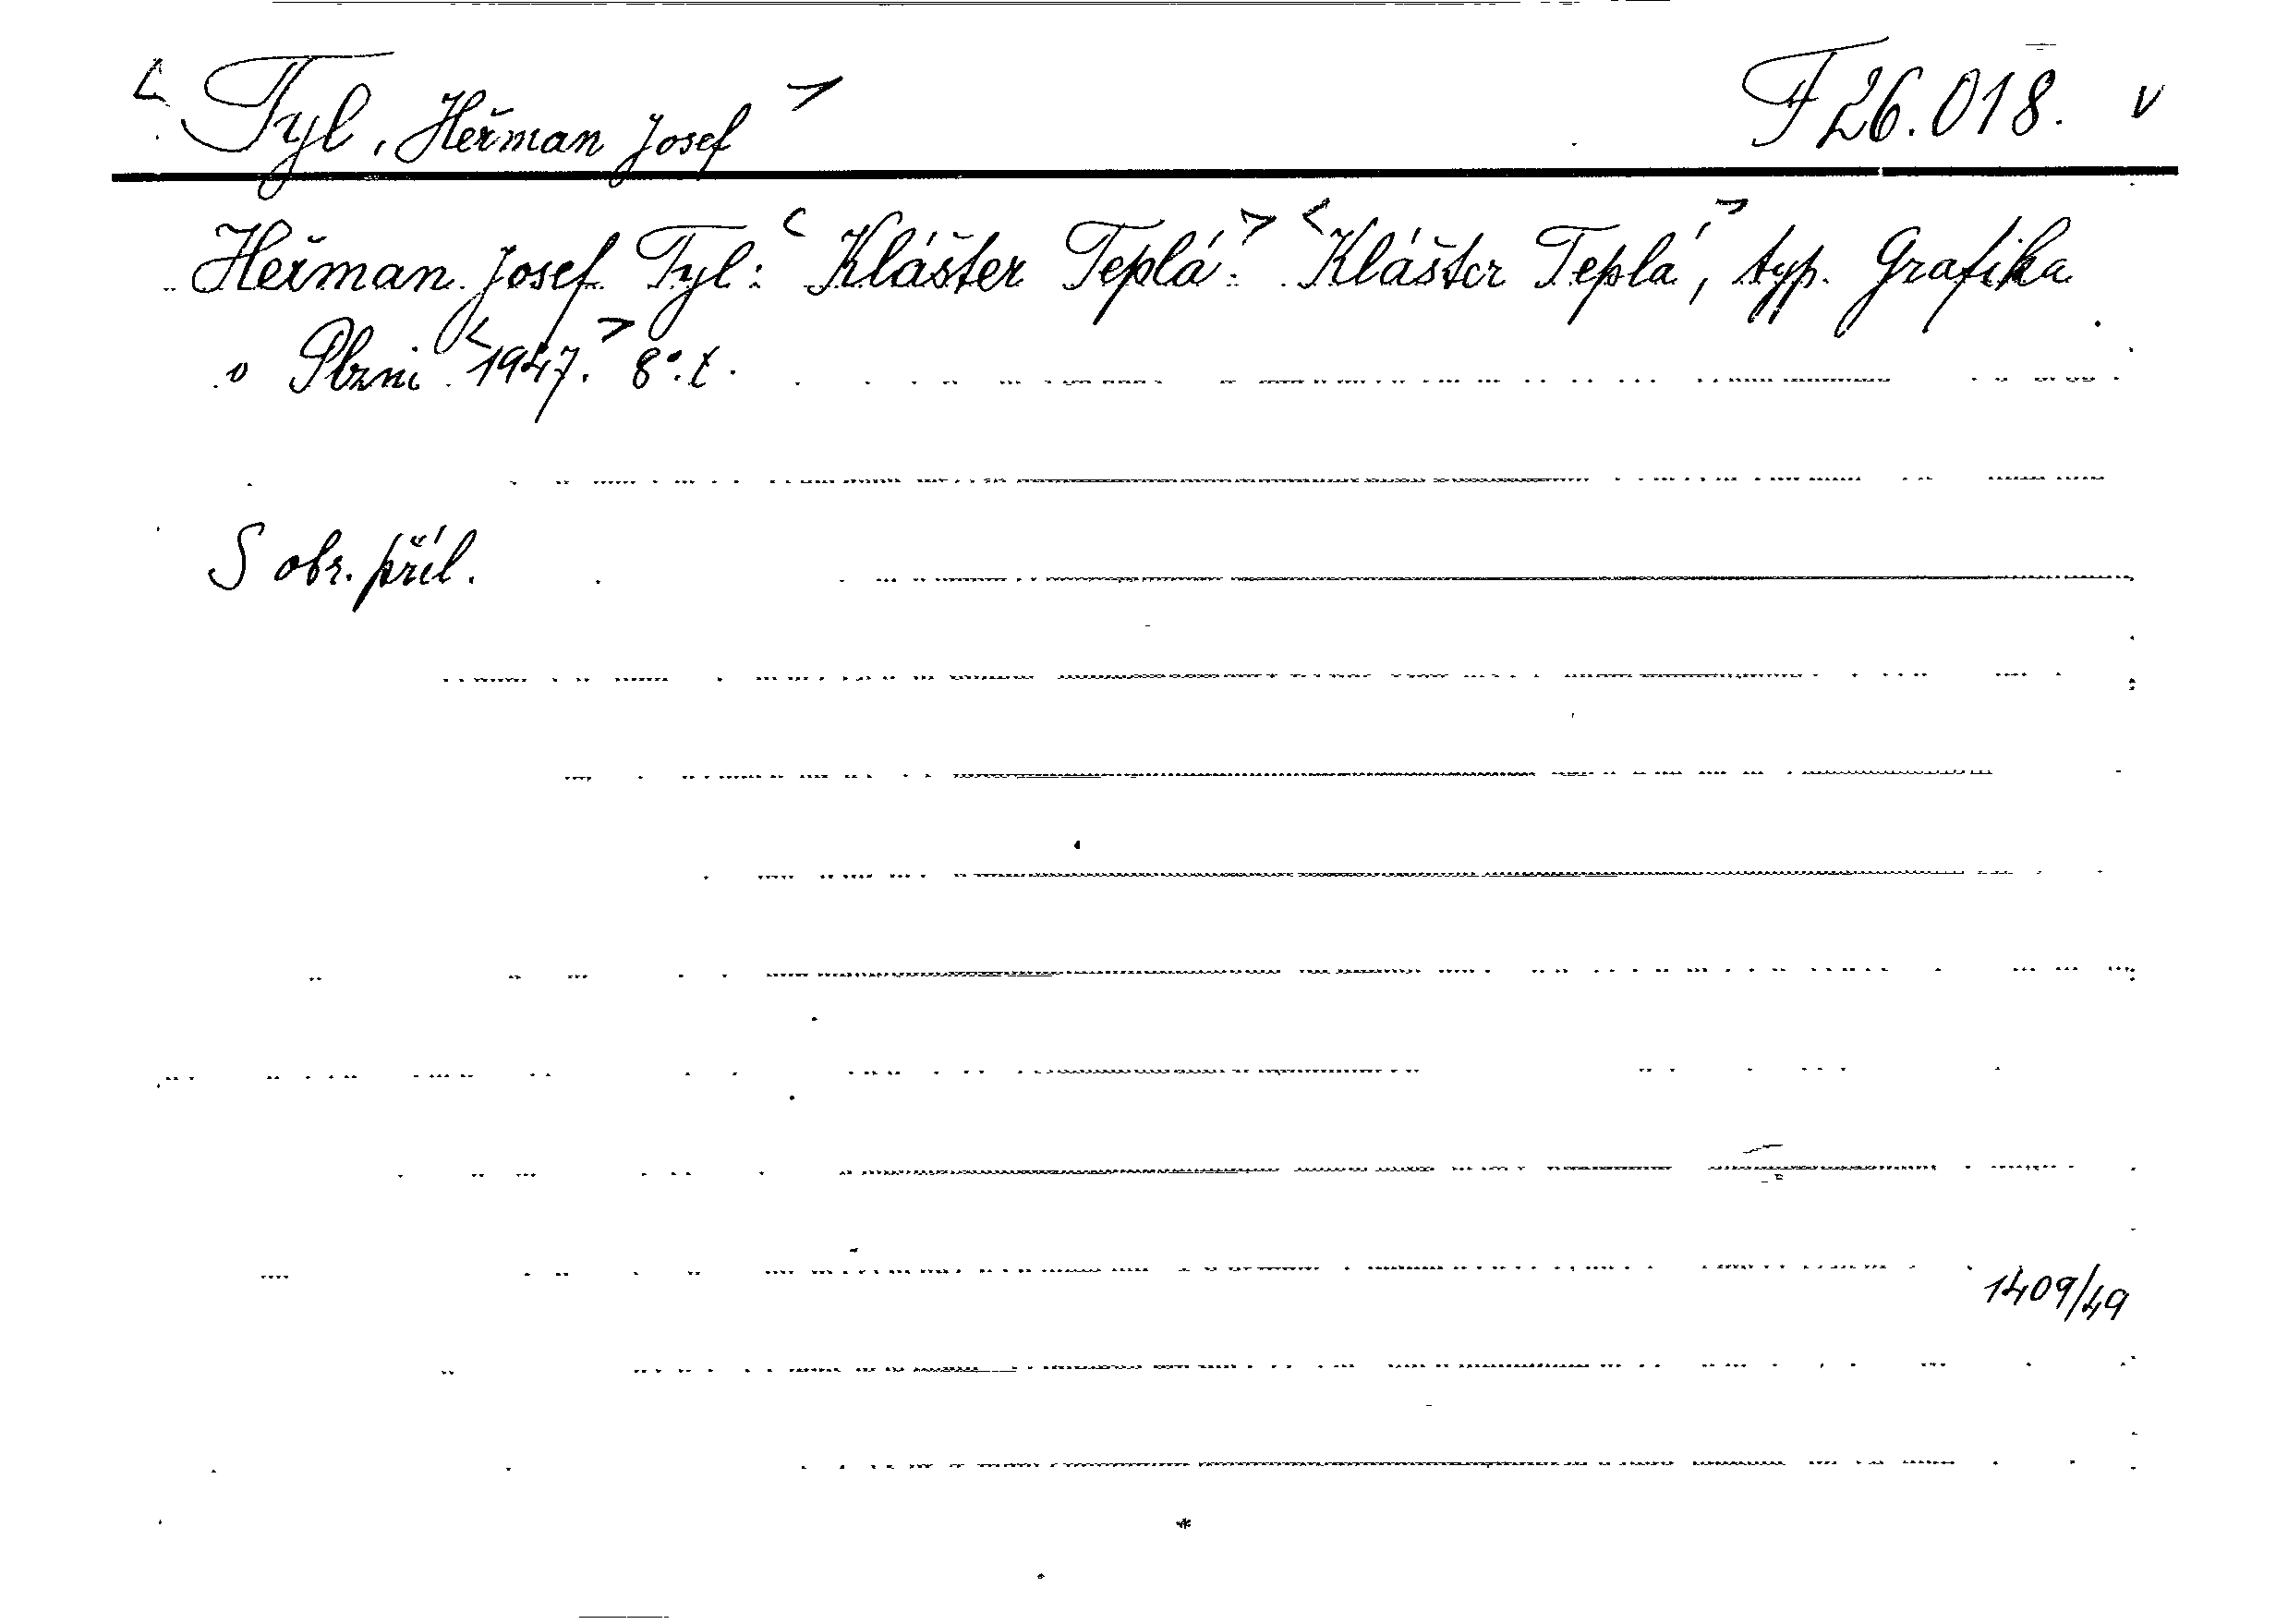 < Tyl, Heřman Josef > F 26.018. v
Heřman Josef Tyl: < Klášter Teplá. > < Klášter Teplá, > typ. Grafika
v Plzni < 1947. > 8°. t.
S obr. příl.
1409/49